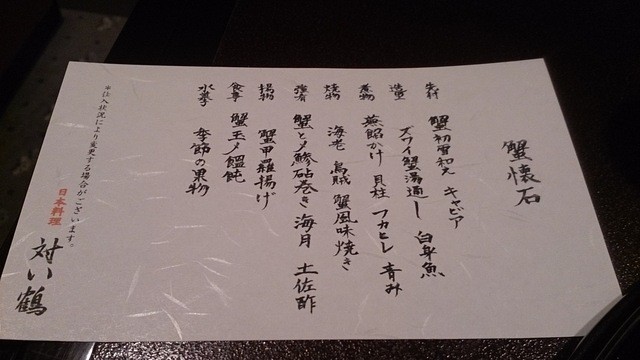 蟹懐石
先付 蟹初雪和え キャビア
造里 ズワイ蟹湯通し 白身魚
煮物 蕪餡かけ 貝柱 フカヒレ 青み
焼物 海老 烏賊 蟹風味焼き
強肴 蟹と〆鯵砧巻き 海月 土佐酢
揚物 蟹甲羅揚げ
食事 蟹玉〆饂飩
水菓子 季節の果物
※仕入状況により変更する場合がございます。
日本料理
対い鶴